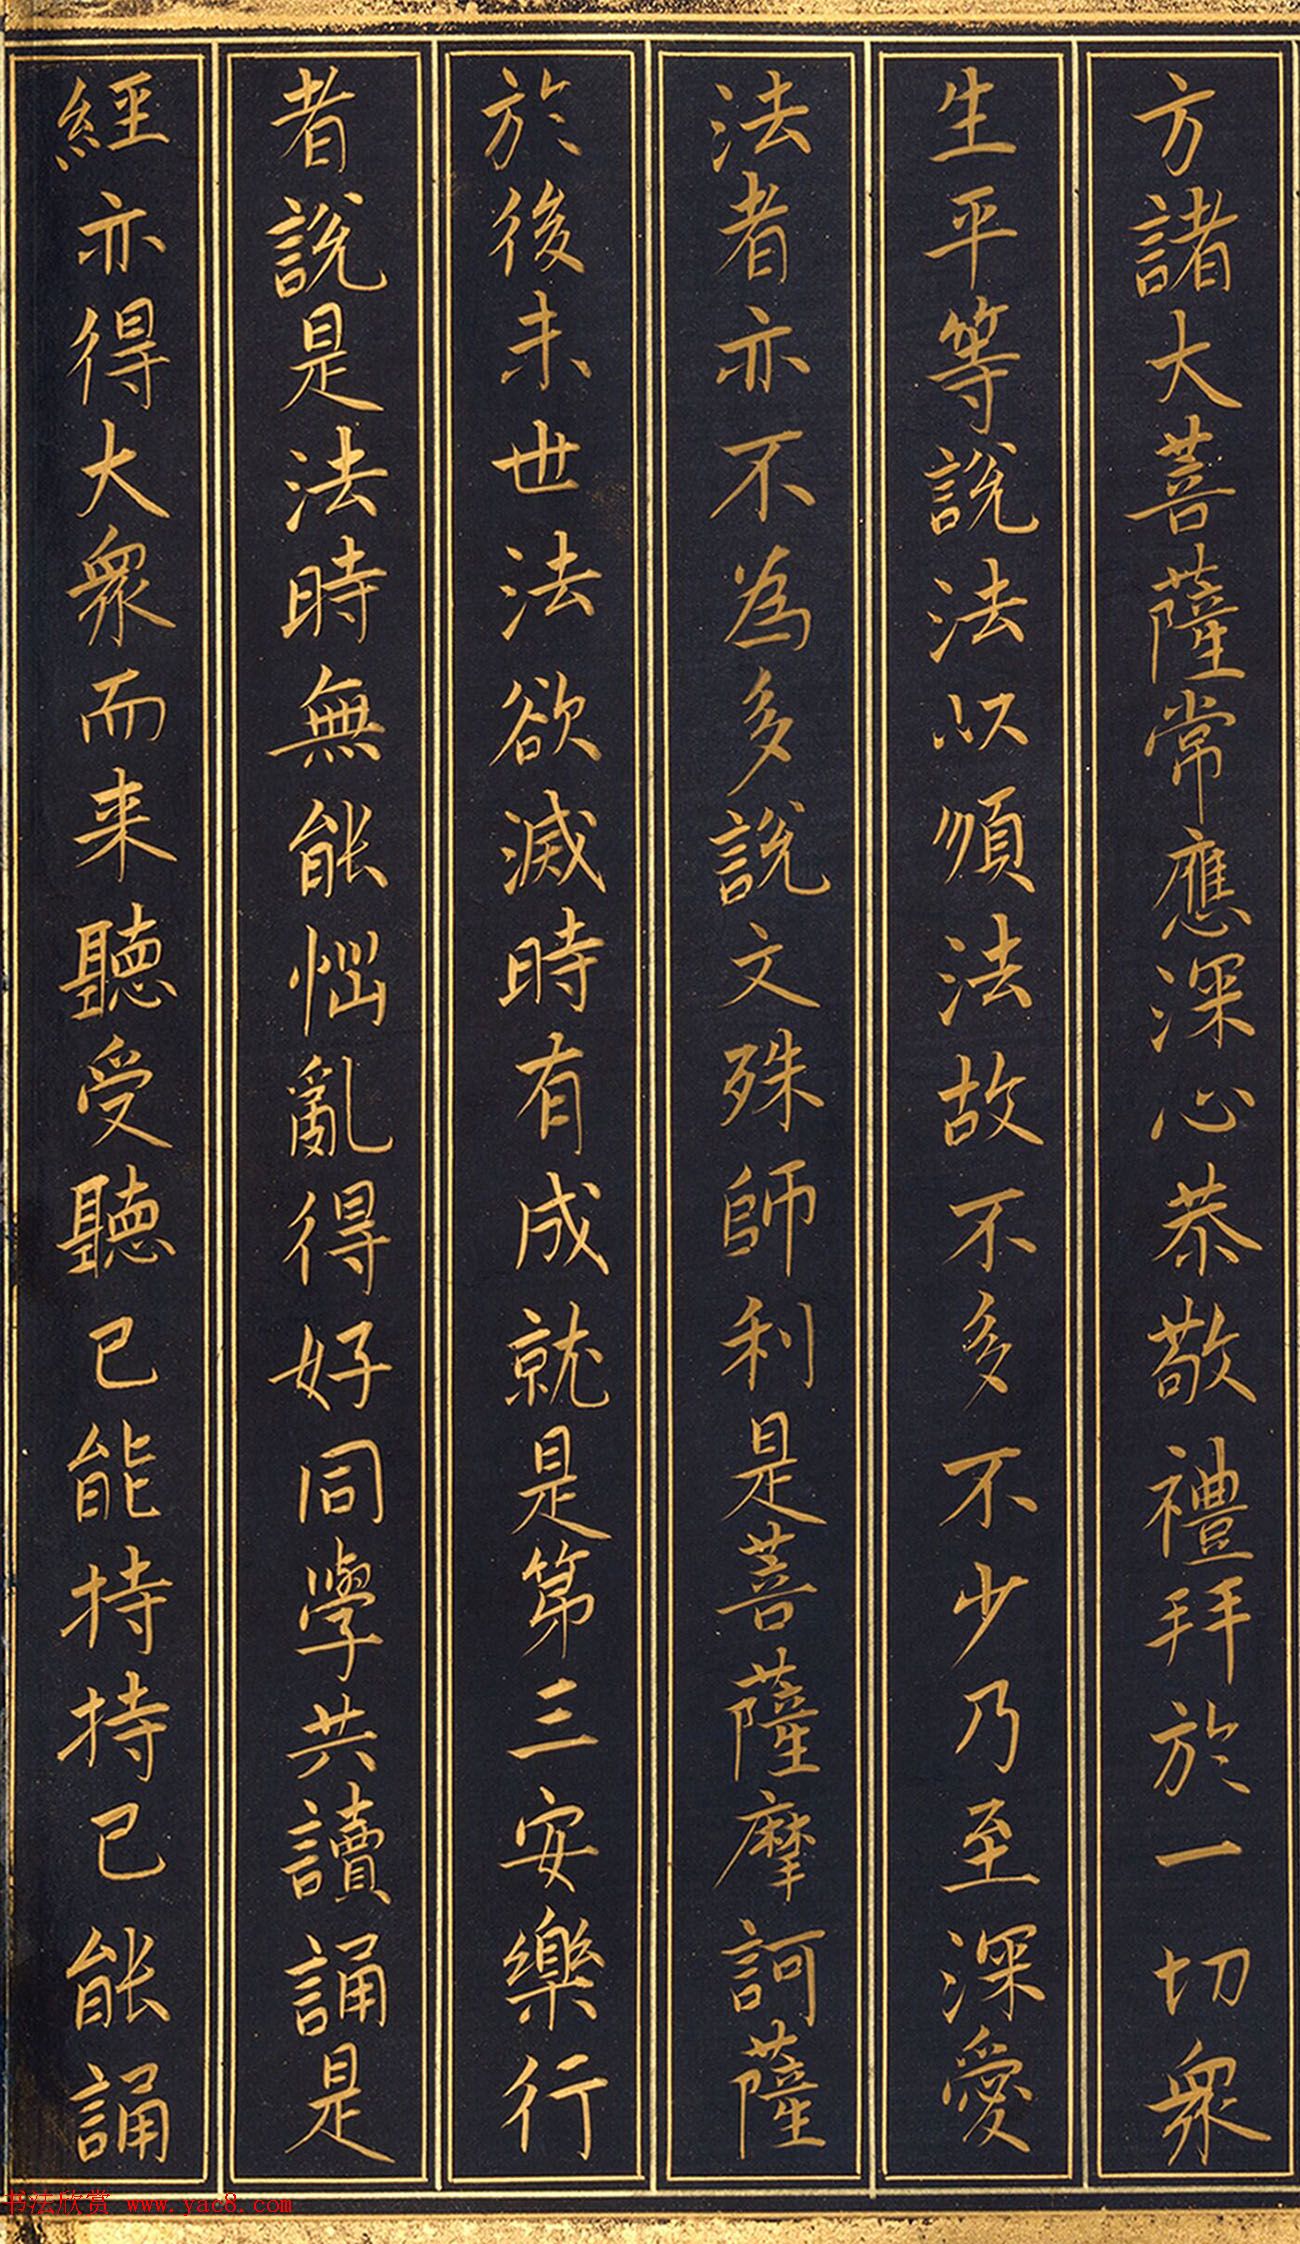 方諸大菩薩常應深心恭敬禮拜於一切衆
生平等說法以順法故不多不少乃至深愛
法者亦不為多說文殊師利是菩薩摩訶薩
於後末世法欲滅時有成就是第三安樂行
者說是法時無能惱亂得好同學共讀誦是
經亦得大衆而来聽受聽已能持持已能誦
书法欣赏 www.yac8.com